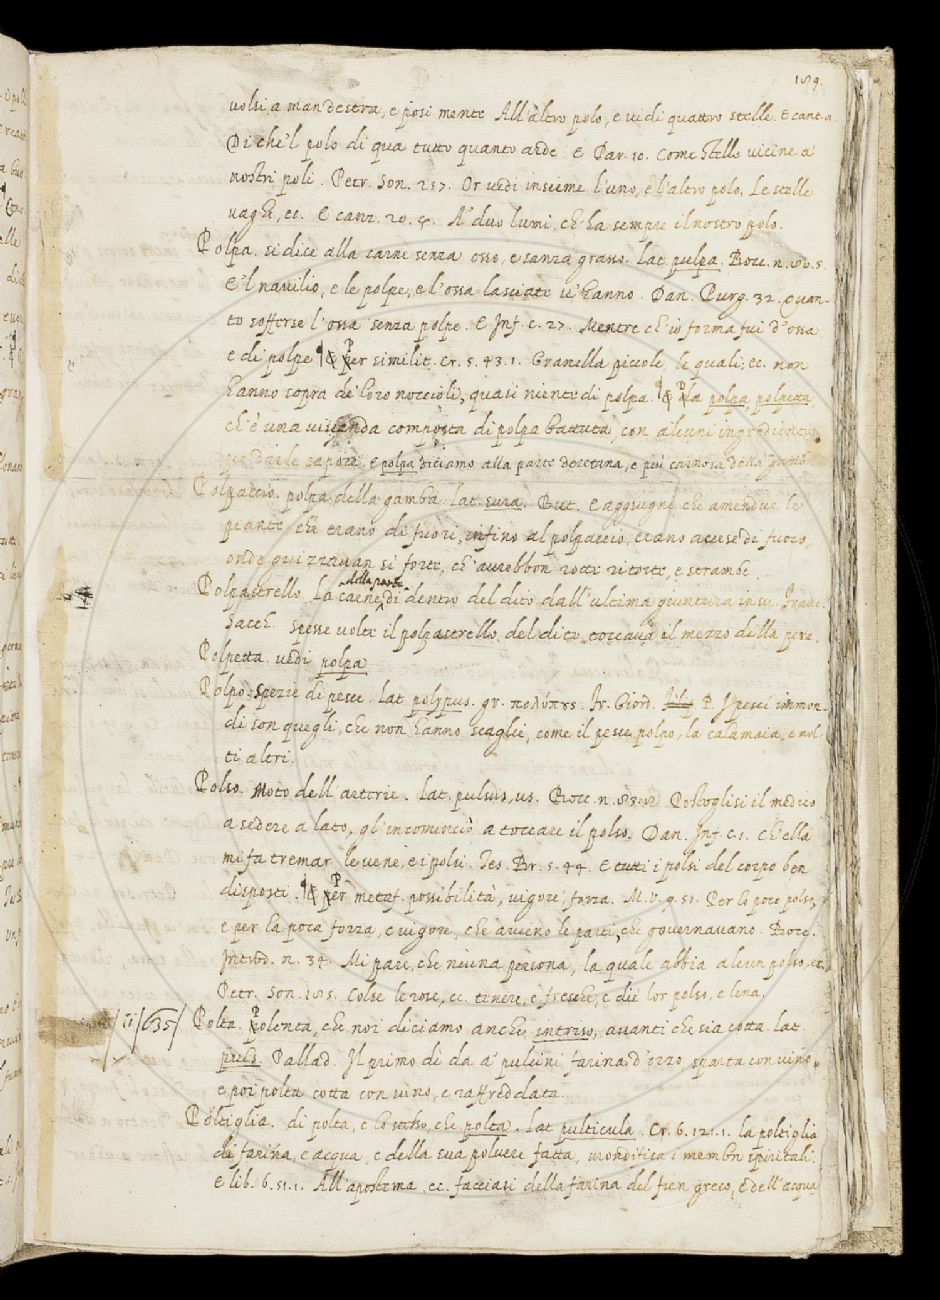 189.
volsi a man destra, e posi mente All'altro polo, e vidi quattro stelle. E cant. 8.
Di che'l polo di qua tutto quanto arde. E Par. 10. Come stelle vicine a'
nostri poli. Petr. Son. 257. Or vedi insieme l'uno, e l'altro polo, Le stelle
vaghe, ec. E canz. 20. 5. A' duo lumi, ch'ha sempre il nostro polo.
Polpa. si dice alla carne senza osso, e sanza grasso. Lat. pulpa. Bocc. n.
E'l navilio, e le polpe, e l'ossa lasciate v'hanno. Dan. Purg. 32. Quan-
to sofferse l'ossa senza polpe. E Inf. c. 27. Mentre ch'io forma fui d'ossa
e di polpe Per similit. Cr. 5. 43. 1. Granella piccole, le quali, ec. non
hanno sopra de' loro noccioli, quasi niente di polpa. la polpa, polpetta,
ch'è una vivanda composta di polpa battuta, con alcuni ingredienti
per darle sapore. E polpa diciamo alla parte deretana, e più carnosa della gamba
Polpaccio. polpa della gamba. Lat. sura. But. E aggiugne che amendue le
piante, che erano di fuori, infino al polpaccio, erano accese di fuoco,
onde guizzavan si forte, ch'avrebbon rotte ritorte, e strambe.
della parte
Polpastrello. La carne, di dentro del dito dall'ultima giuntura in su. Franc.
Sacch. Spesse volte il polpastrello del dito toccava il mezzo della pera.
Polpetta. vedi polpa
Polpo. Spezie di pesce. Lat. polypus. gr. πολύπȣς. Fr. Giord. P. I pesci immon-
di son quegli, che non hanno scaglie, come il pesce polpo, la calamaia, e mol-
ti altri.
Polso. Moto dell'arterie. Lat. pulsus, us. Bocc. n. Postoglisi il medico
a sedere a lato, gl'incominciò a toccare il polso. Dan. Inf. c. 1. Ch'ella
mi fa tremar le vene, e i polsi. Tes. Br. 5. 44. E tutti i polsi del corpo ben
disposti. Per metaf. possibilità, vigore, forza. M. V. 9. 51. Per lo poco polso,
e per la poca forza, e vigore, che avieno le parti, che governavano. Bocc.
Introd. n. 34. Mi pare, che niuna persona, la quale abbia alcun polso, ec.
Petr. Son. Colse le rose, ec. tenere, e fresche, e diè lor polso, e lena.
/11/635/ Polta. Polenta, che noi diciamo anche intriso, avanti che sia cotta. Lat.
puls. Pallad. Il primo di da a' pulcini farina d'orzo, sparta con vino,
e poi polta cotta con vino, e raffreddata.
Poltiglia. di polta, e lo stesso, che polta. Lat. pulticula. Cr. 6. 121. 1. la poltiglia
di farina, e acqua, e della sua polvere fatta, mondifica i membri spiritali.
E lib. 6. 51. 1. All'apostema, ec. facciasi della farina del fien greco, e dell'acqua